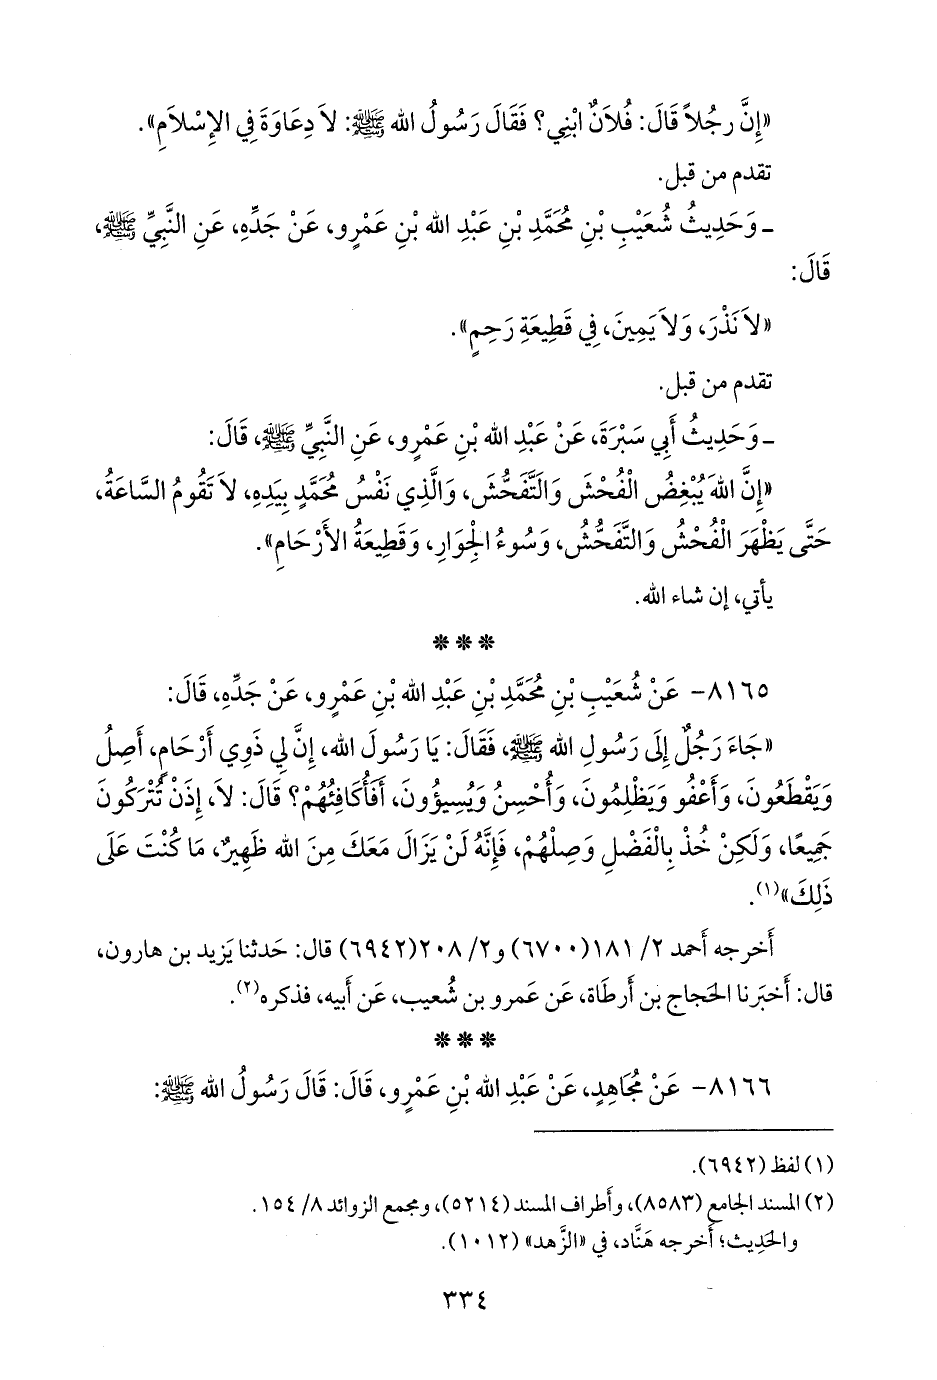 «إِنَّ رجُلاً قَالَ: فُلاَنٌ ابْنِي؟ فَقَالَ رَسُولُ الله ﷺ: لاَ دِعَاوَةَ فِي الإِسْلاَمِ».
تقدم من قبل.
ـ وَحَدِيثُ شُعَيْبِ بْنِ مُحَمَّدِ بْنِ عَبْدِ الله بْنِ عَمْرٍو، عَنْ جَدِّهِ، عَنِ النَّبِيِّ ﷺ،
قَالَ:
«لاَ نَذْرَ، وَلاَ يَمِينَ، فِي قَطِيعَةِ رَحِمٍ».
تقدم من قبل.
ـ وَحَدِيثُ أَبِي سَبْرَةَ، عَنْ عَبْدِ الله بْنِ عَمْرٍو، عَنِ النَّبِيِّ ﷺ، قَالَ:
«إِنَّ اللهَ يُبْغِضُ الْفُحْشَ وَالتَّفَحُّشَ، وَالَّذِي نَفْسُ مُحَمَّدٍ بِيَدِهِ، لاَ تَقُومُ السَّاعَةُ،
حَتَّى يَظْهَرَ الْفُحْشُ وَالتَّفَحُّشُ، وَسُوءُ الْجِوَارِ، وَقَطِيعَةُ الأَرْحَامِ».
يأتي، إن شاء الله.
* * *
٨١٦٥- عَنْ شُعَيْبِ بْنِ مُحَمَّدِ بْنِ عَبْدِ الله بْنِ عَمْرٍو، عَنْ جَدِّهِ، قَالَ:
«جَاءَ رَجُلٌ إِلَى رَسُولِ الله ﷺ، فَقَالَ: يَا رَسُولَ الله، إِنَّ لِي ذَوِي أَرْحَامٍ، أَصِلُ
وَيَقْطَعُونَ، وَأَعْفُو وَيَظْلِمُونَ، وَأُحْسِنُ وَيُسِيؤُونَ، أَفَأُكَافِئُهُمْ؟ قَالَ: لاَ، إِذَنْ تُتْرَكُونَ
جَمِيعًا، وَلَكِنْ خُذْ بِالْفَضْلِ وَصِلْهُمْ، فَإِنَّهُ لَنْ يَزَالَ مَعَكَ مِنَ الله ظَهِيرٌ، مَا كُنْتَ عَلَى
ذَلِكَ»(١).
أَخرجه أَحمد ٢/ ١٨١(٦٧٠٠) و٢/ ٢٠٨(٦٩٤٢) قال: حَدثنا يَزيد بن هارون،
قال: أَخبَرنا الحَجاج بن أَرطَاة، عَن عَمرو بن شُعيب، عَن أَبيه، فذكره(٢).
* * *
٨١٦٦- عَنْ مُجَاهِدٍ، عَنْ عَبْدِ الله بْنِ عَمْرٍو، قَالَ: قَالَ رَسُولُ الله ﷺ:
(١) لفظ (٦٩٤٢).
(٢) المسند الجامع (٨٥٨٣)، وأَطراف المسند (٥٢١٤)، ومجمع الزوائد ٨/ ١٥٤.
والحَدِيث؛ أَخرجه هَنَّاد، في «الزُّهد» (١٠١٢).
٣٣٤